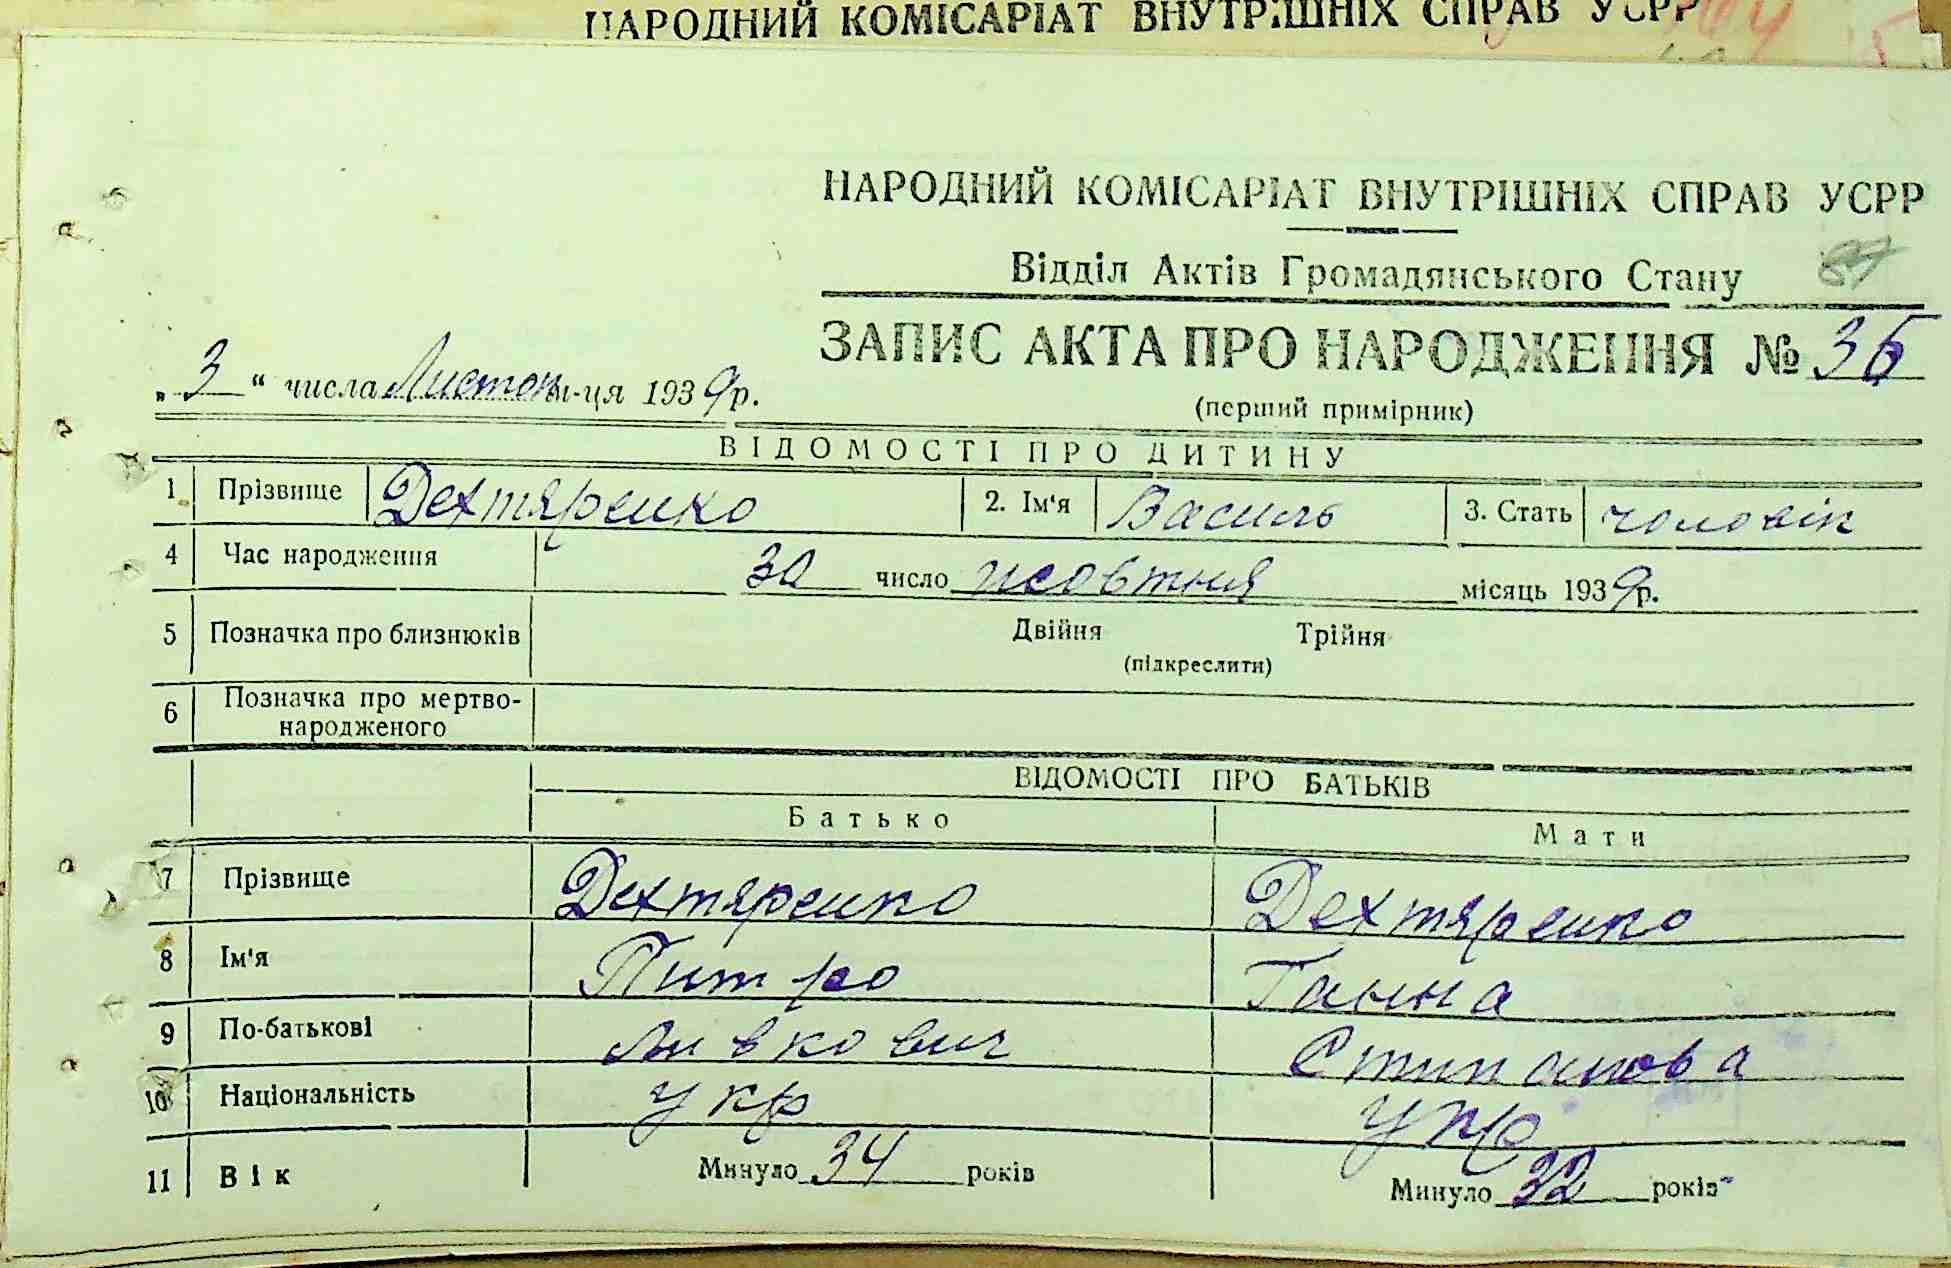 НАРОДНИЙ КОМІСАРІАТ ВНУТРІШНІХ СПРАВ УСРР
НАРОДНИЙ КОМІСАРІАТ ВНУТРІШНІХ СПРАВ УСРР
Відділ Актів Громадянського Стану
ЗАПИС АКТА ПРО НАРОДЖЕННЯ № 36
„ 3 “ числа Листоп м-ця 1939 р.
(перший примірник)
ВІДОМОСТІ ПРО ДИТИНУ
1 Прізвище Дехтяренко 2. Ім'я Василь 3. Стать чоловік
4 Час народження 30 число жовтня місяць 1939 р.
5 Позначка про близнюків Двійня Трійня
(підкреслити)
6 Позначка про мертво-
народженого
ВІДОМОСТІ ПРО БАТЬКІВ
Батько Мати
7 Прізвище Дехтяренко Дехтяренко
8 Ім'я Питро Ганна
9 По-батькові Ливкович Стипанова
10 Національність Укр Укр
11 Вік Минуло 34 років Минуло 32 років